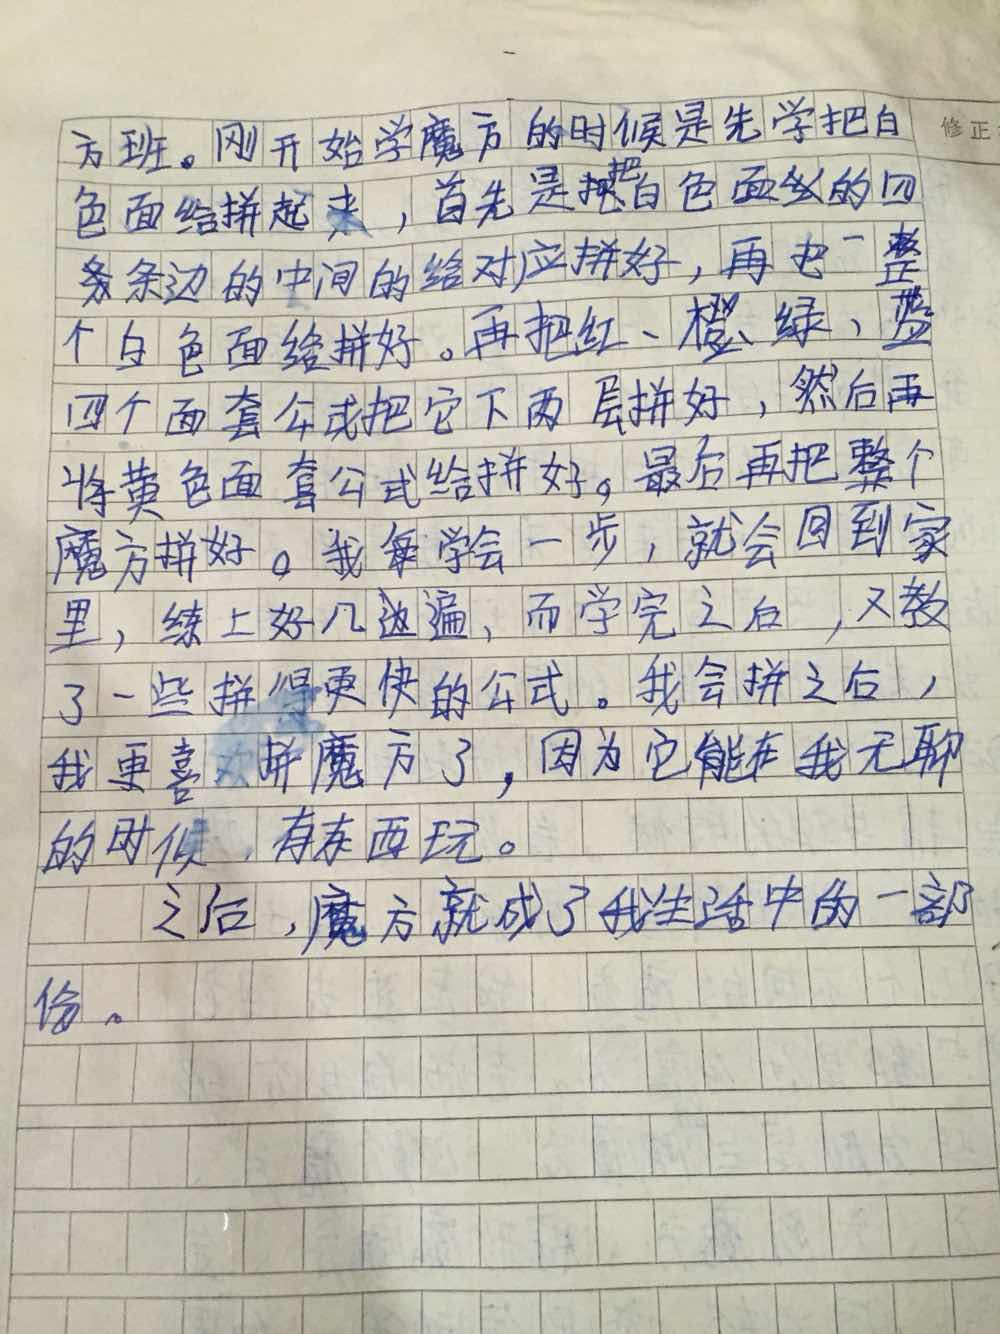 方班。刚开始学魔方的时候是先学把白
修正
色面给拼起来，首先是把白色面的四
条边的中间的给对应拼好，再把一整
个白色面给拼好。再把红、橙、绿、蓝
四个面套公式把它下两层拼好，然后再
将黄色面套公式给拼好。最后再把整个
魔方拼好。我每学会一步，就会回到家
里，练上好几遍，而学完之后，又教
了一些拼得更快的公式。我会拼之后，
我更喜欢拼魔方了，因为它能在我无聊
的时候，有东西玩。
之后，魔方就成了我生活中的一部
份。